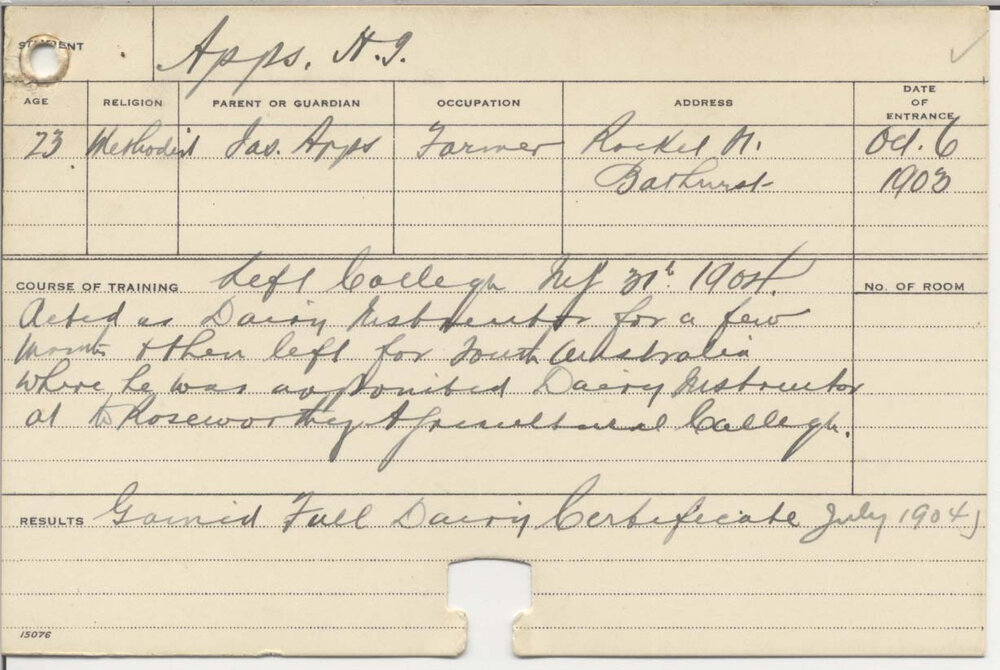 STUDENT Apps. H. J.
AGE RELIGION PARENT OR GUARDIAN OCCUPATION ADDRESS DATE OF ENTRANCE
23 Methodist Jas. Apps Farmer Rocket St. Oct. 6
Bathurst 1903
COURSE OF TRAINING Left College 31st 1904. No. OF ROOM
Acted as Dairy Instructor for a few
months & then left for South Australia
where he was appointed Dairy Instructor
at Roseworthy Agricultural College.
RESULTS Gained Full Dairy Certificate July 1904
15076